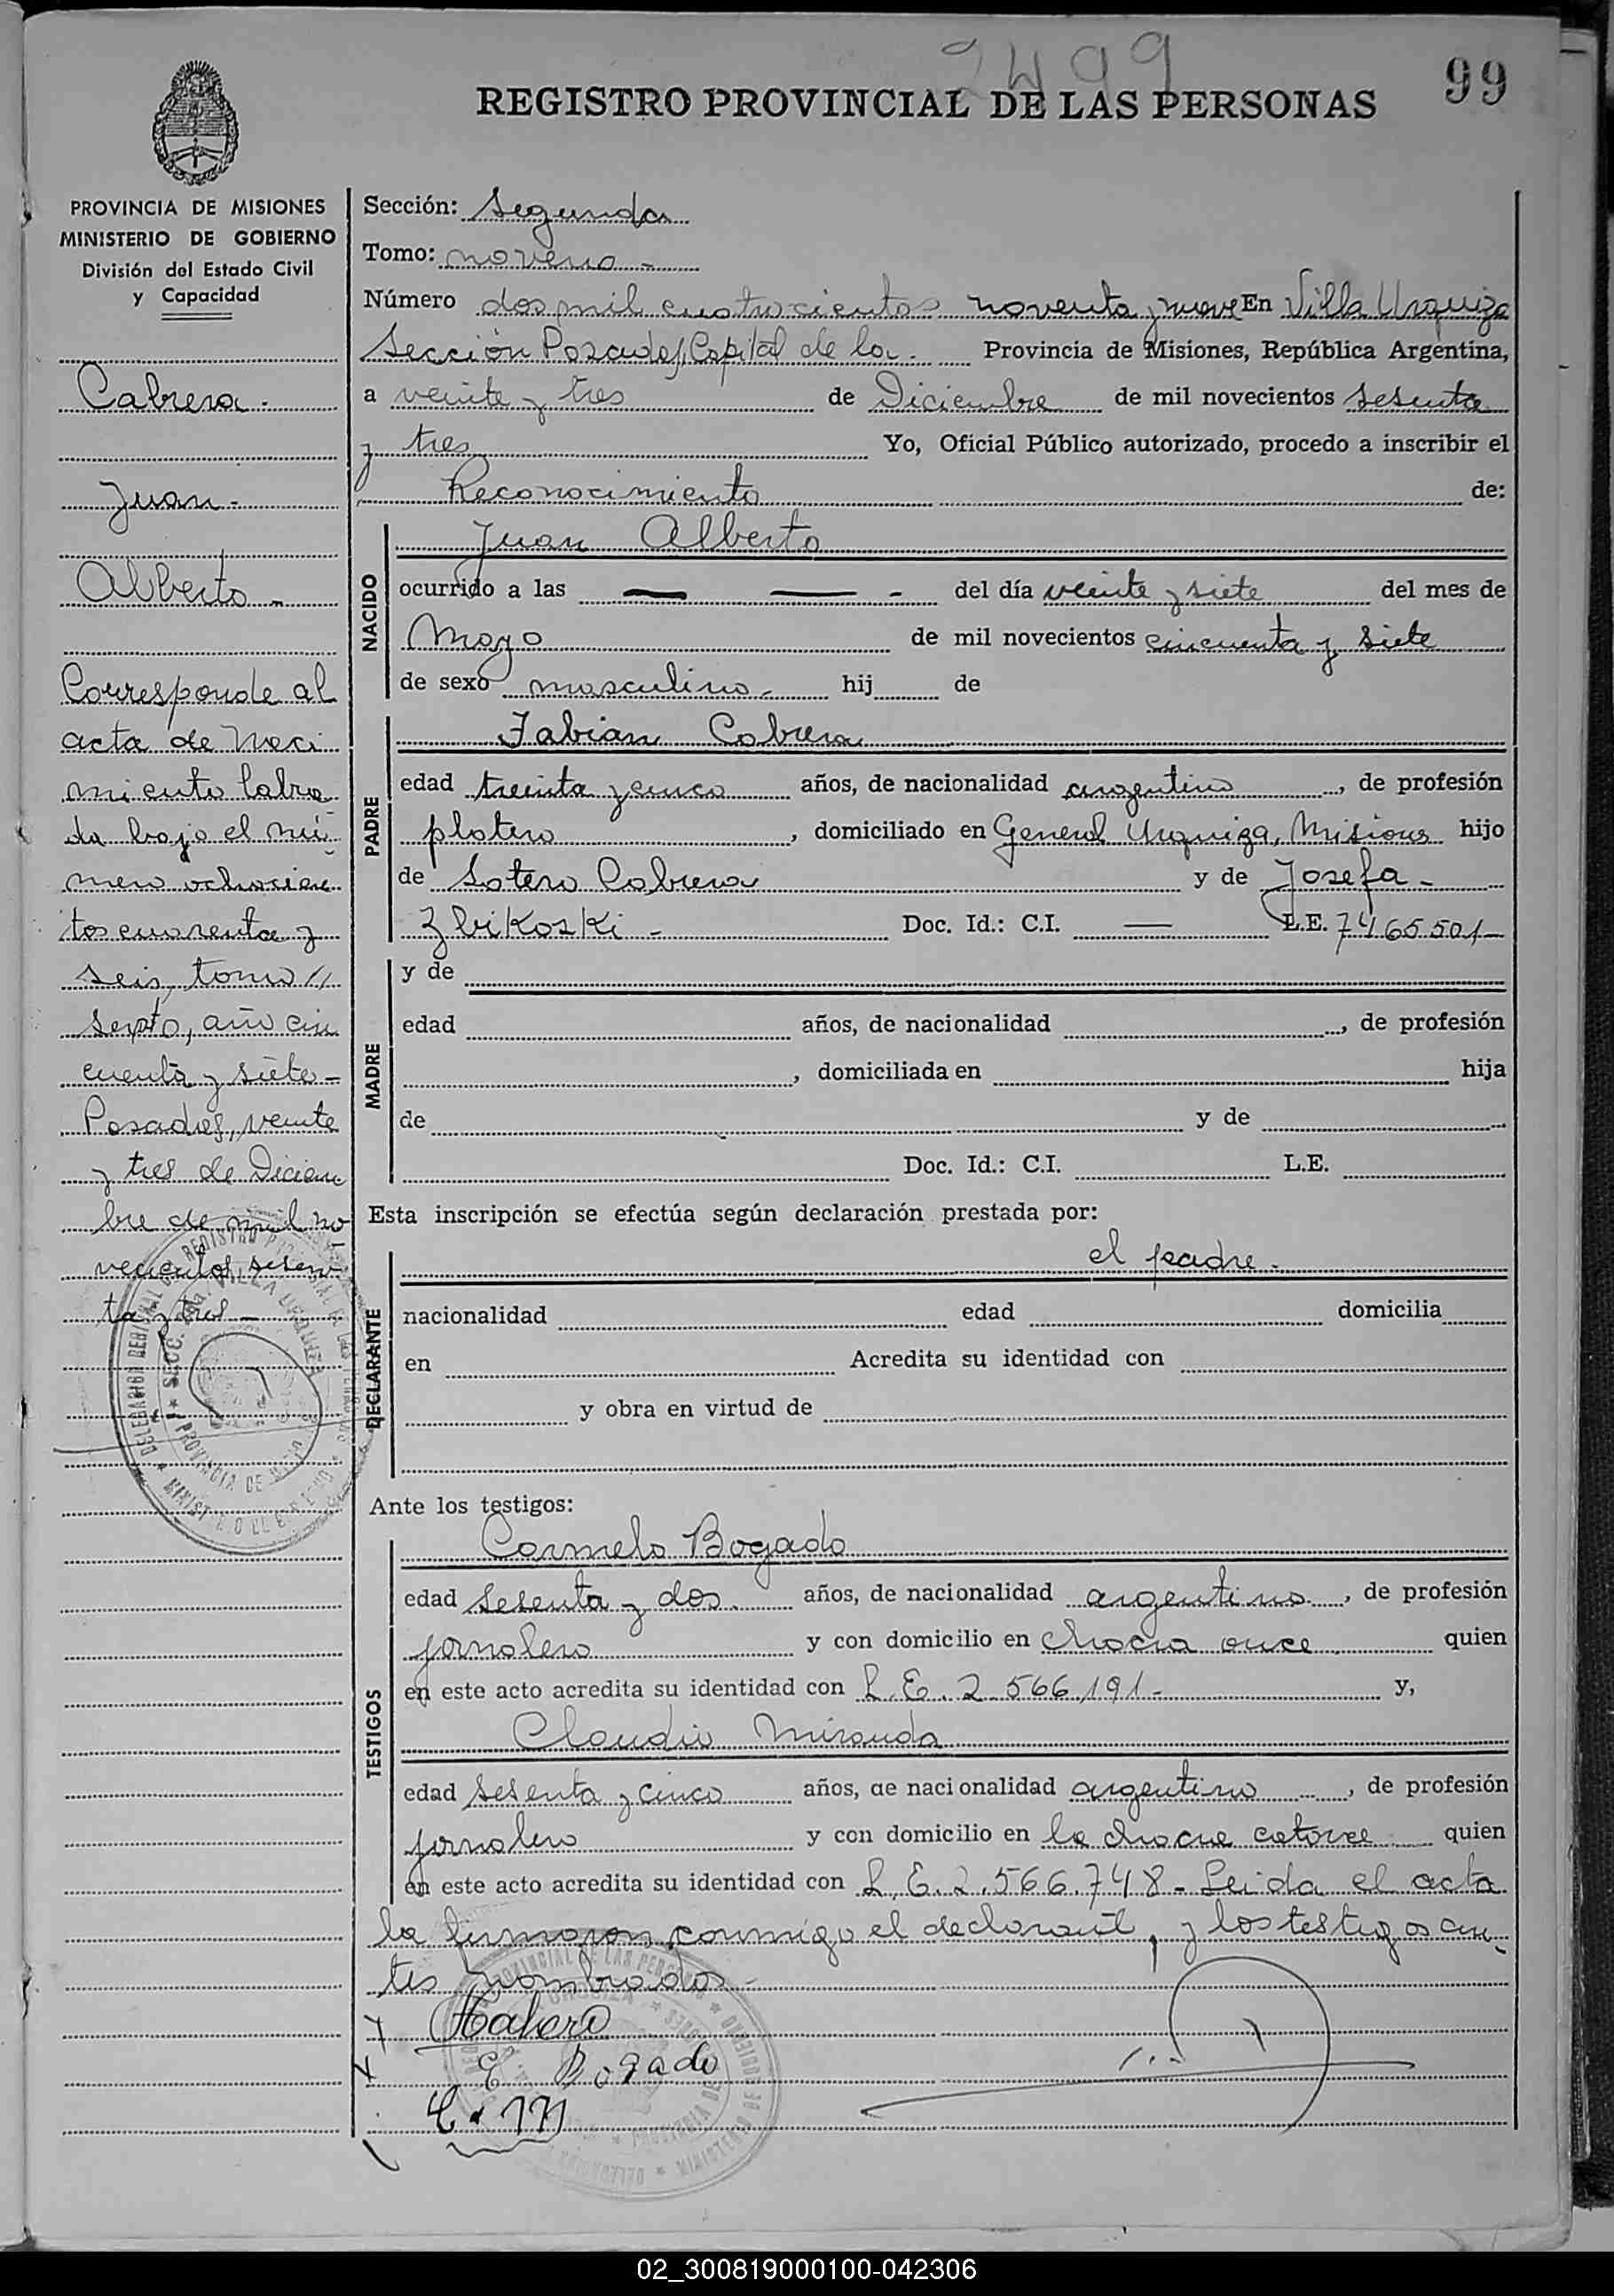 2499
99
REGISTRO PROVINCIAL DE LAS PERSONAS
PROVINCIA DE MISIONES
MINISTERIO DE GOBIERNO
División del Estado Civil
y Capacidad
Cabrera.
Juan-
Alberto-
Corresponde al
acta de Naci
miento labra
da bajo el nú
mero ochocien
tos cuarenta y
seis, tomo //
sexto, año cin
cuenta y siete-
Posadas, veinte
y tres de Diciem
bre de mil no
vecientos sesen
ta y tres-
Sección: Segunda
Tomo: noveno -
Número dos mil cuatrocientos noventa y nueve En Villa Urquiza
Sección Posadas, Capital de la. Provincia de Misiones, República Argentina,
a veinte y tres de Diciembre de mil novecientos sesenta
y tres Yo, Oficial Público autorizado, procedo a inscribir el
Reconocimiento de:
NACIDO
Juan Alberto
ocurrido a las — — - del día veinte y siete del mes de
Mayo de mil novecientos cincuenta y siete
de sexo masculino. hij de
PADRE
Fabian Cabrera
edad treinta y cinco años, de nacionalidad argentino, de profesión
platero, domiciliado en General Urquiza, Misiones hijo
de Sotero Cabrera y de Josefa-
Zbikoski - Doc. Id.: C.I. — L.E. 7465.501-
MADRE
y de
edad años, de nacionalidad , de profesión
, domiciliada en hija
de y de
Doc. Id.: C.I. L.E.
Esta inscripción se efectúa según declaración prestada por:
DECLARANTE
el padre.
nacionalidad edad domicilia
en Acredita su identidad con
y obra en virtud de
Ante los testigos:
TESTIGOS
Carmelo Bogado
edad sesenta y dos. años, de nacionalidad argentino, de profesión
jornalero y con domicilio en chacra once quien
en este acto acredita su identidad con L.E. 2.566.191- y,
Claudio Miranda
edad sesenta y cinco años, de nacionalidad argentino, de profesión
jornalero y con domicilio en la chacra catorce quien
en este acto acredita su identidad con L.E. 2.566.748- Leida el acta
la firmaron conmigo el declarante, y los testigos an
tes nombrados-
C Bogado
C. M
02_300819000100-042306